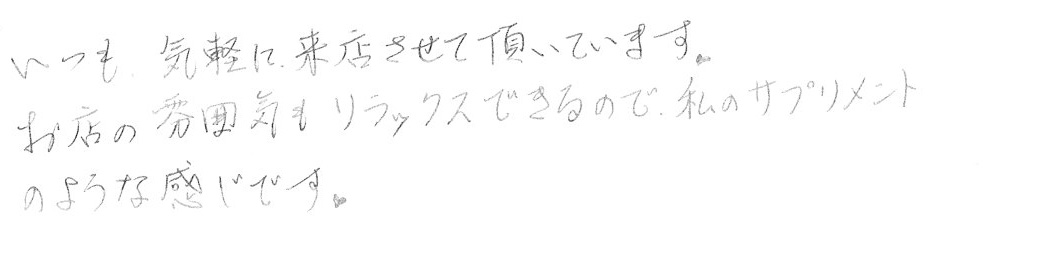 いつも、気軽に、来店させて頂いています。
お店の雰囲気もリラックスできるので、私のサプリメント
のような感じです。